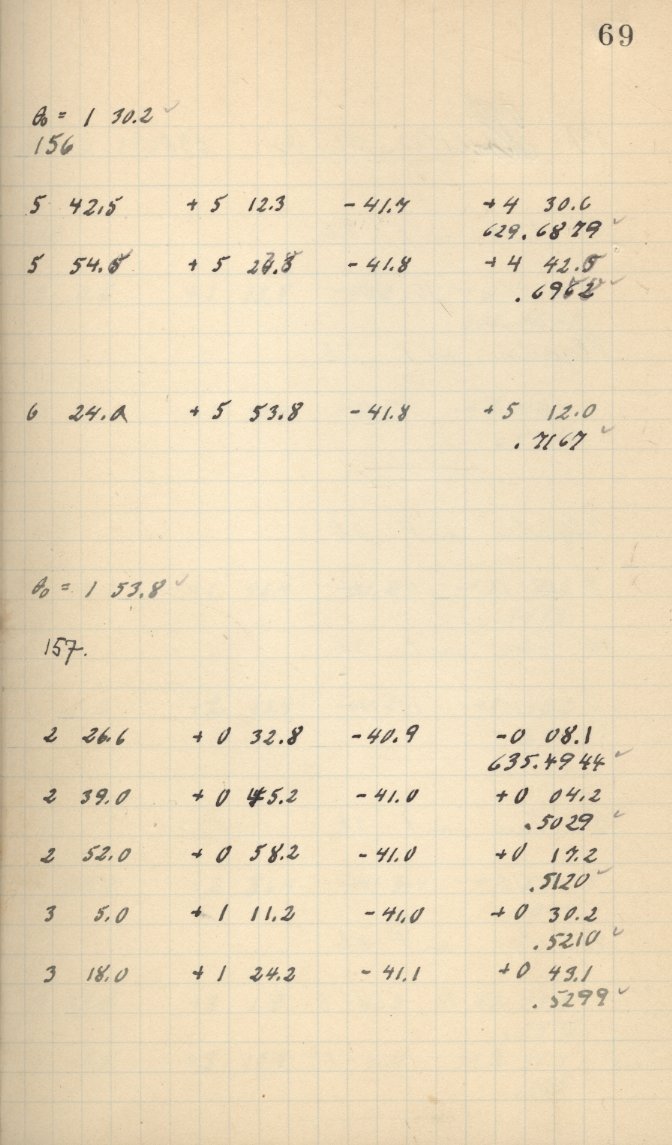 69
θ₀ = 1 30.2 ✓
156
5 42.5 + 5 12.3 - 41.7 + 4 30.6
629.6879 ✓
5 54.5 + 5 24.3 - 41.8 + 4 42.5
.6962 ✓
6 24.0 + 5 53.8 - 41.8 + 5 12.0
.7167 ✓
θ₀ = 1 53.8 ✓
157.
2 26.6 + 0 32.8 - 40.9 - 0 08.1
635.4944 ✓
2 39.0 + 0 45.2 - 41.0 + 0 04.2
.5029 ✓
2 52.0 + 0 58.2 - 41.0 + 0 17.2
.5120 ✓
3 5.0 + 1 11.2 - 41.0 + 0 30.2
.5210 ✓
3 18.0 + 1 24.2 - 41.1 + 0 43.1
.5299 ✓